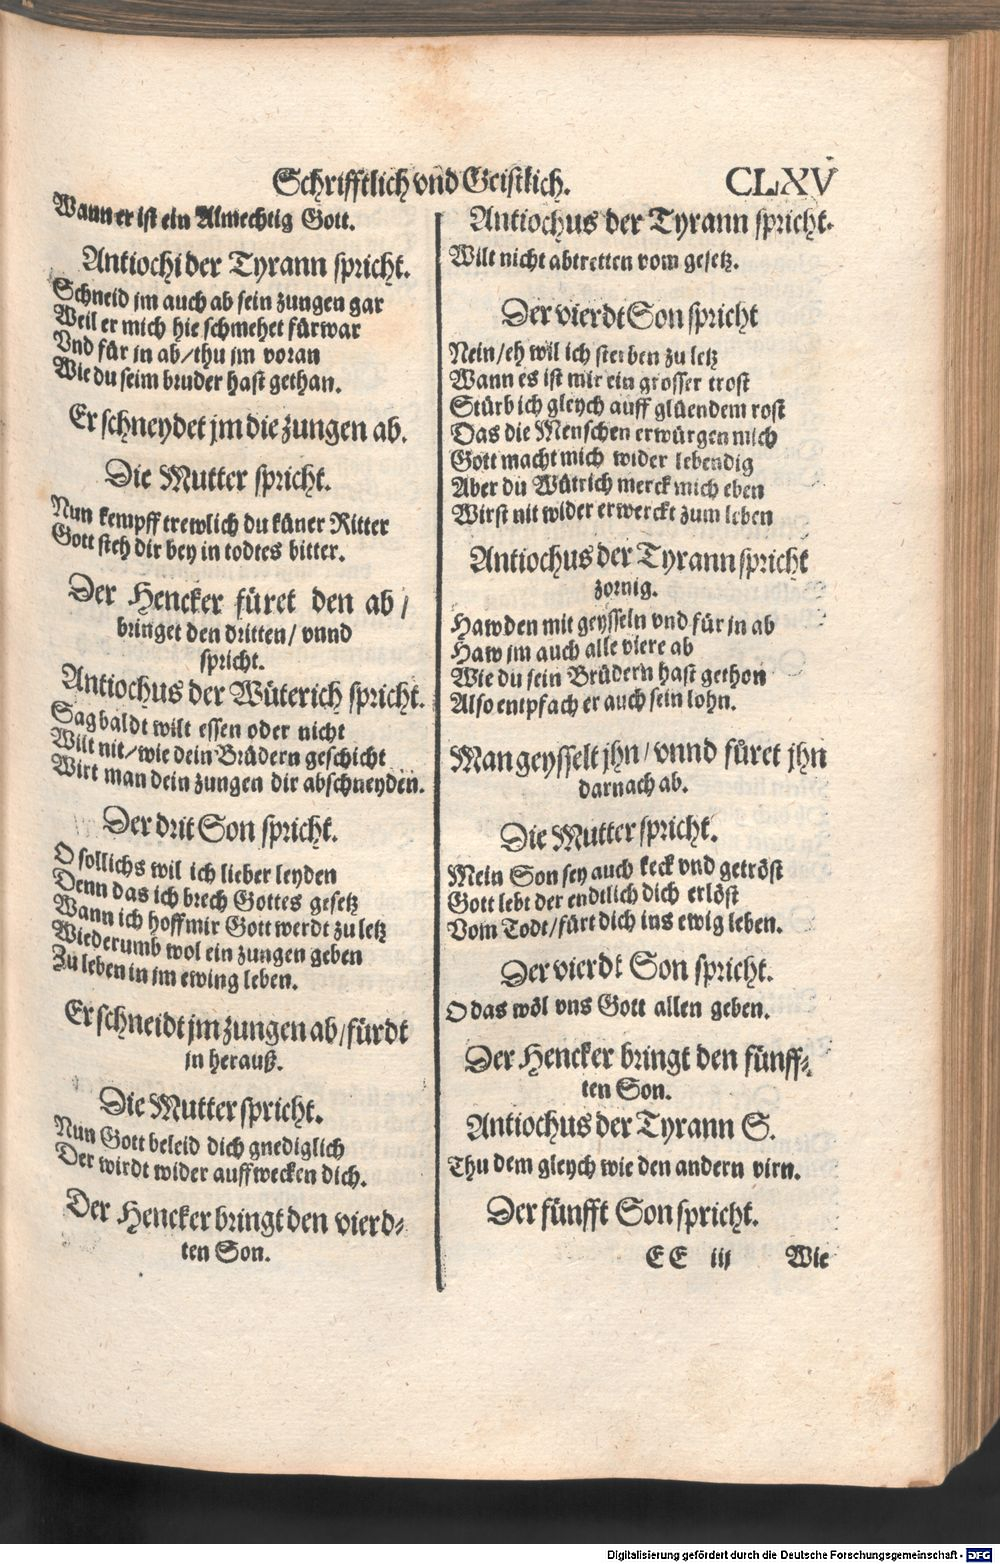 Schrifftlich vnd Geistlich. CLXV
Wann er ist ein Almechtig Gott.
Antiochi der Tyrann spricht.
Schneid jm auch ab sein zungen gar
Weil er mich hie schmehet fürwar
Vnd für jn ab/thu jm voran
Wie du seim bruder hast gethan.
Er schneydet jm die zungen ab.
Die Mutter spricht.
Nun kempff trewlich du küner Ritter
Gott steh dir bey in todtes bitter.
Der Hencker füret den ab/
bringet den dritten/ vnnd
spricht.
Antiochus der Wüterich spricht.
Sag baldt wilt essen oder nicht
Wilt nit/wie dein Brüdern geschicht
Wirt man dein zungen dir abschneyden.
Der drit Son spricht.
O sollichs wil ich lieber leyden
Denn das ich brech Gottes gesetz
Wann ich hoff mir Gott werdt zu letz
Wiederumb wol ein zungen geben
Zu leben in jm ewing leben.
Er schneidt jm zungen ab/fürdt
jn herauß.
Die Mutter spricht.
Nun Gott beleid dich gnediglich
Der wirdt wider auffwecken dich.
Der Hencker bringt den vierd-
ten Son.
Antiochus der Tyrann spricht.
Wilt nicht abtretten vom gesetz.
Der vierdt Son spricht
Nein/eh wil ich sterben zu letz
Wann es ist mir ein grosser trost
Stürb ich gleych auff glüendem rost
Das die Menschen erwürgen mich
Gott macht mich wider lebendig
Aber du Wütrich merck mich eben
Wirst nit wider erwerckt zum leben
Antiochus der Tyrann spricht
zornig.
Haw den mit geysseln vnd für jn ab
Haw jm auch alle viere ab
Wie du sein Brüdern hast gethon
Also entpfach er auch sein lohn.
Man geysselt jhn/ vnnd füret jhn
darnach ab.
Die Mutter spricht.
Mein Son sey auch keck vnd getröst
Gott lebt der endtlich dich erlöst
Vom Todt/fürt dich ins ewig leben.
Der vierdt Son spricht.
O das wöl vns Gott allen geben.
Der Hencker bringt den fünff-
ten Son.
Antiochus der Tyrann S.
Thu dem gleych wie den andern virn.
Der fünfft Son spricht.
EE iii Wie
Digitalisierung gefördert durch die Deutsche Forschungsgemeinschaft - DFG